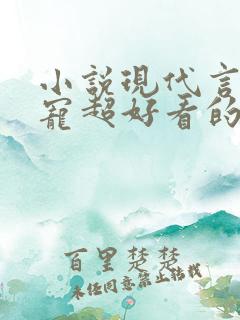 小说现代言
宠超好看的
百里楚楚
未经同意禁止转载